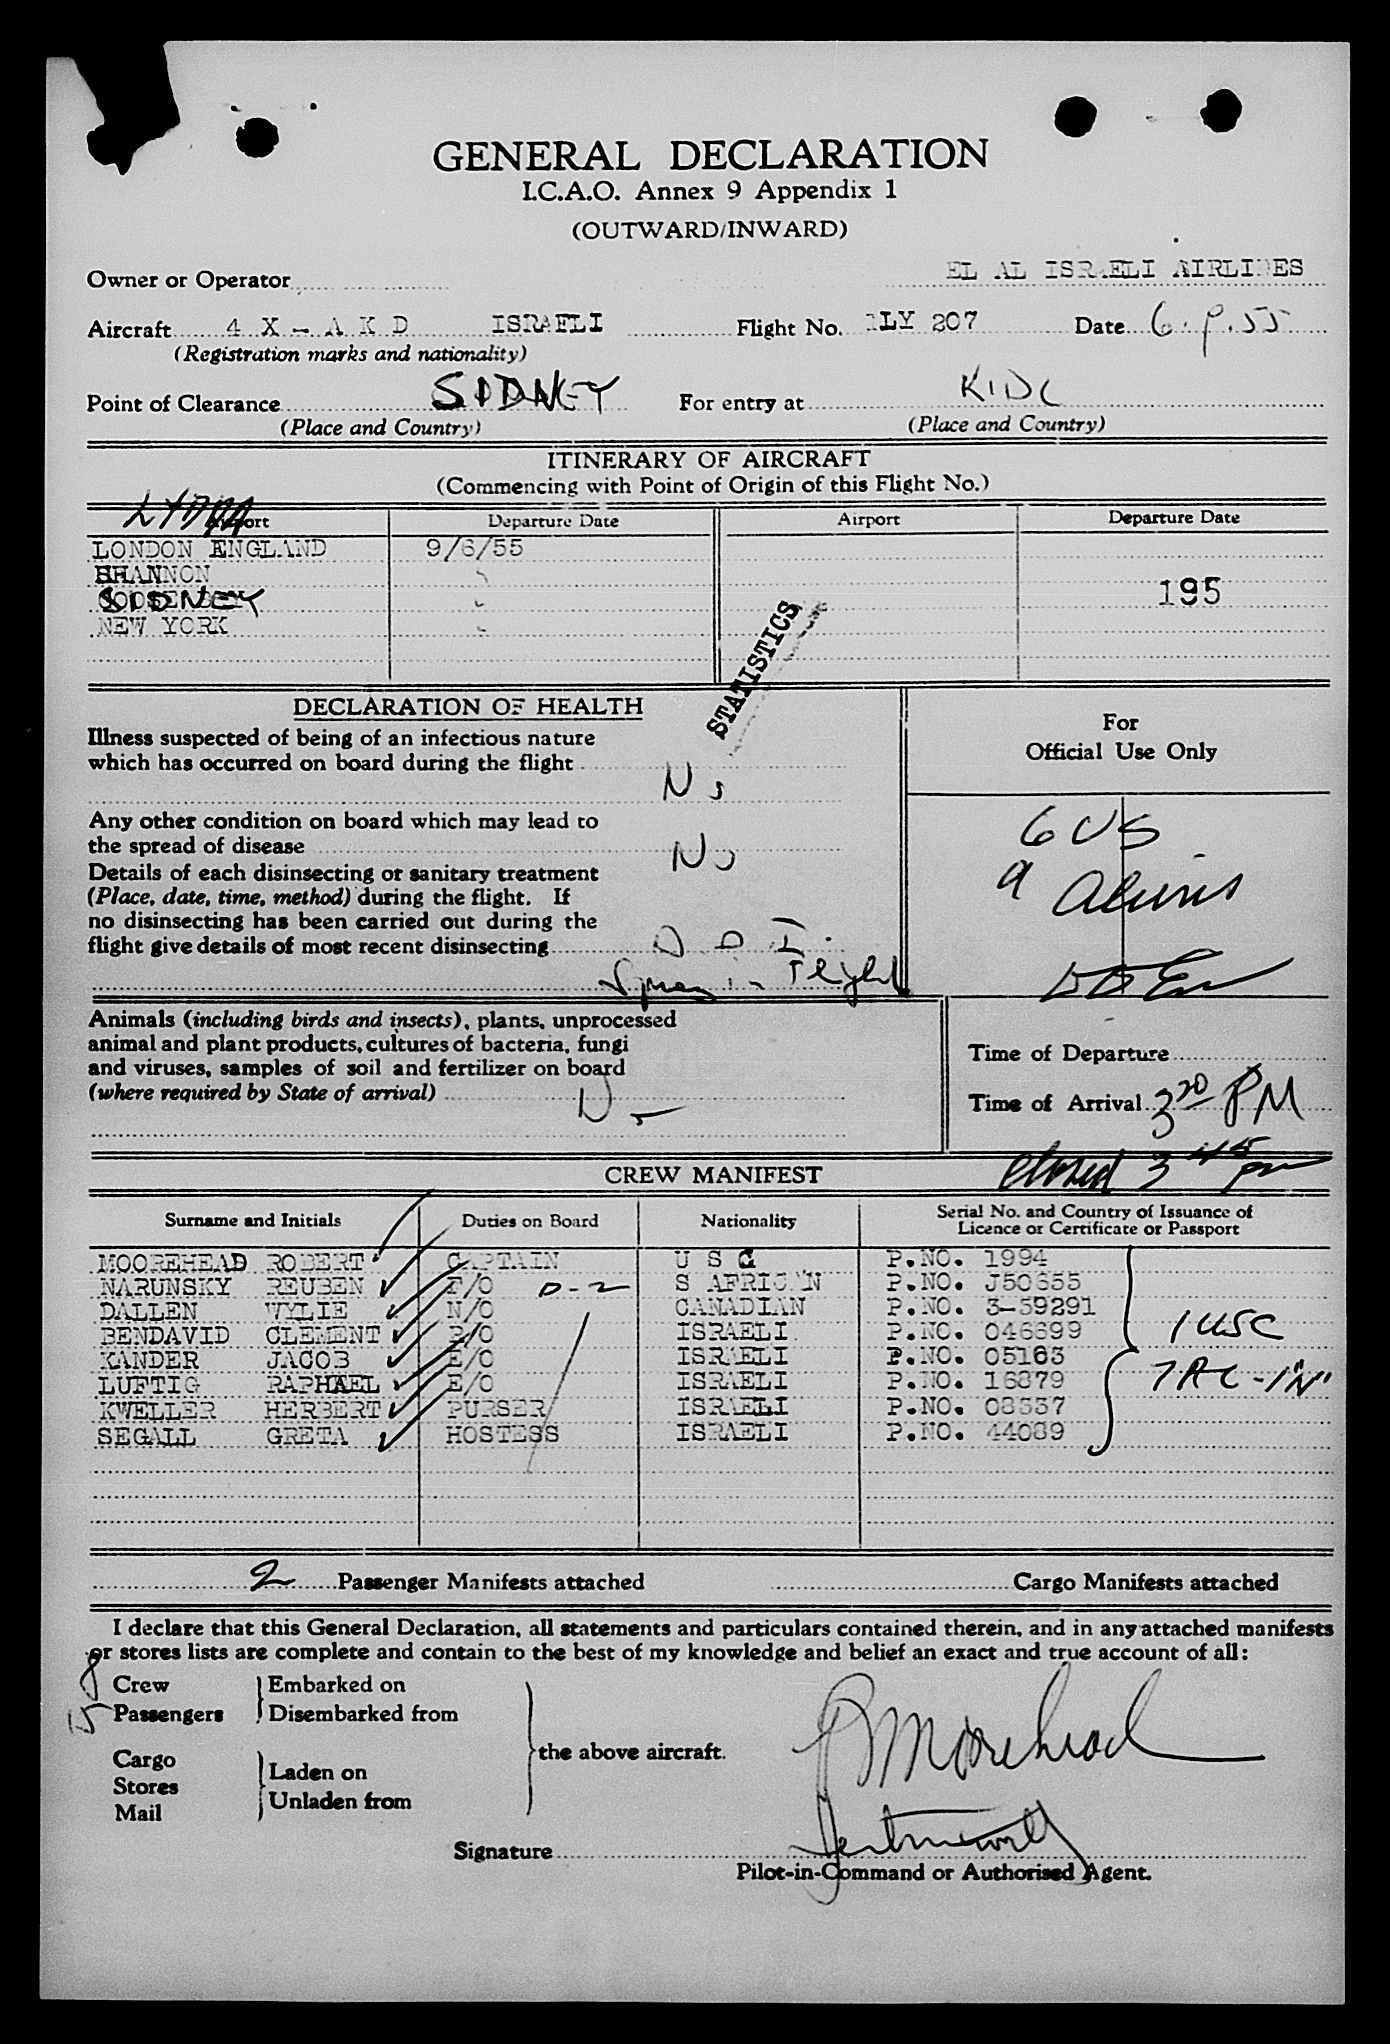 GENERAL DECLARATION
I.C.A.O. Annex 9 Appendix 1
(OUTWARD/INWARD)
Owner or Operator EL AL ISRAELI AIRLINES
Aircraft 4 X - A K D ISRAELI Flight No. LY 207 Date 6.9.55
(Registration marks and nationality)
Point of Clearance SIDNEY For entry at KIDL
(Place and Country) (Place and Country)
ITINERARY OF AIRCRAFT
(Commencing with Point of Origin of this Flight No.)
LYDDA
Airport Departure Date Airport Departure Date
LONDON ENGLAND 9/6/55
SHANNON
SIDNEY 195
NEW YORK
STATISTICS
DECLARATION OF HEALTH
For
Official Use Only
Illness suspected of being of an infectious nature
which has occurred on board during the flight No
Any other condition on board which may lead to
the spread of disease No
6 US
9 Aliens
Details of each disinsecting or sanitary treatment
(Place, date, time, method) during the flight. If
no disinsecting has been carried out during the
flight give details of most recent disinsecting
Spray in Flight
Animals (including birds and insects), plants, unprocessed
animal and plant products, cultures of bacteria, fungi
and viruses, samples of soil and fertilizer on board
(where required by State of arrival) No
Time of Departure
Time of Arrival 3 20 PM
closed 3 45 pm
CREW MANIFEST
Surname and Initials Duties on Board Nationality Serial No. and Country of Issuance of
Licence or Certificate or Passport
MOOREHEAD ROBERT CAPTAIN U S C P.NO. 1994
NARUNSKY REUBEN F/O D-2 S AFRICAN P.NO. J50655
DALLEN WYLIE N/O CANADIAN P.NO. 3-59291
BENDAVID CLEMENT R/O ISRAELI P.NO. 046699
KANDER JACOB E/O ISRAELI P.NO. 05163
LUFTIG RAPHAEL E/O ISRAELI P.NO. 16879
KWELLER HERBERT PURSER ISRAELI P.NO. 08537
SEGALL GRETA HOSTESS ISRAELI P.NO. 44089
1 USC
7 AC - 1 "N"
2 Passenger Manifests attached Cargo Manifests attached
I declare that this General Declaration, all statements and particulars contained therein, and in any attached manifests
or stores lists are complete and contain to the best of my knowledge and belief an exact and true account of all:
8 Crew Embarked on
15 Passengers Disembarked from
the above aircraft.
Cargo
Stores Laden on
Mail Unladen from
R Moorehead
Signature
Pilot-in-Command or Authorised Agent.